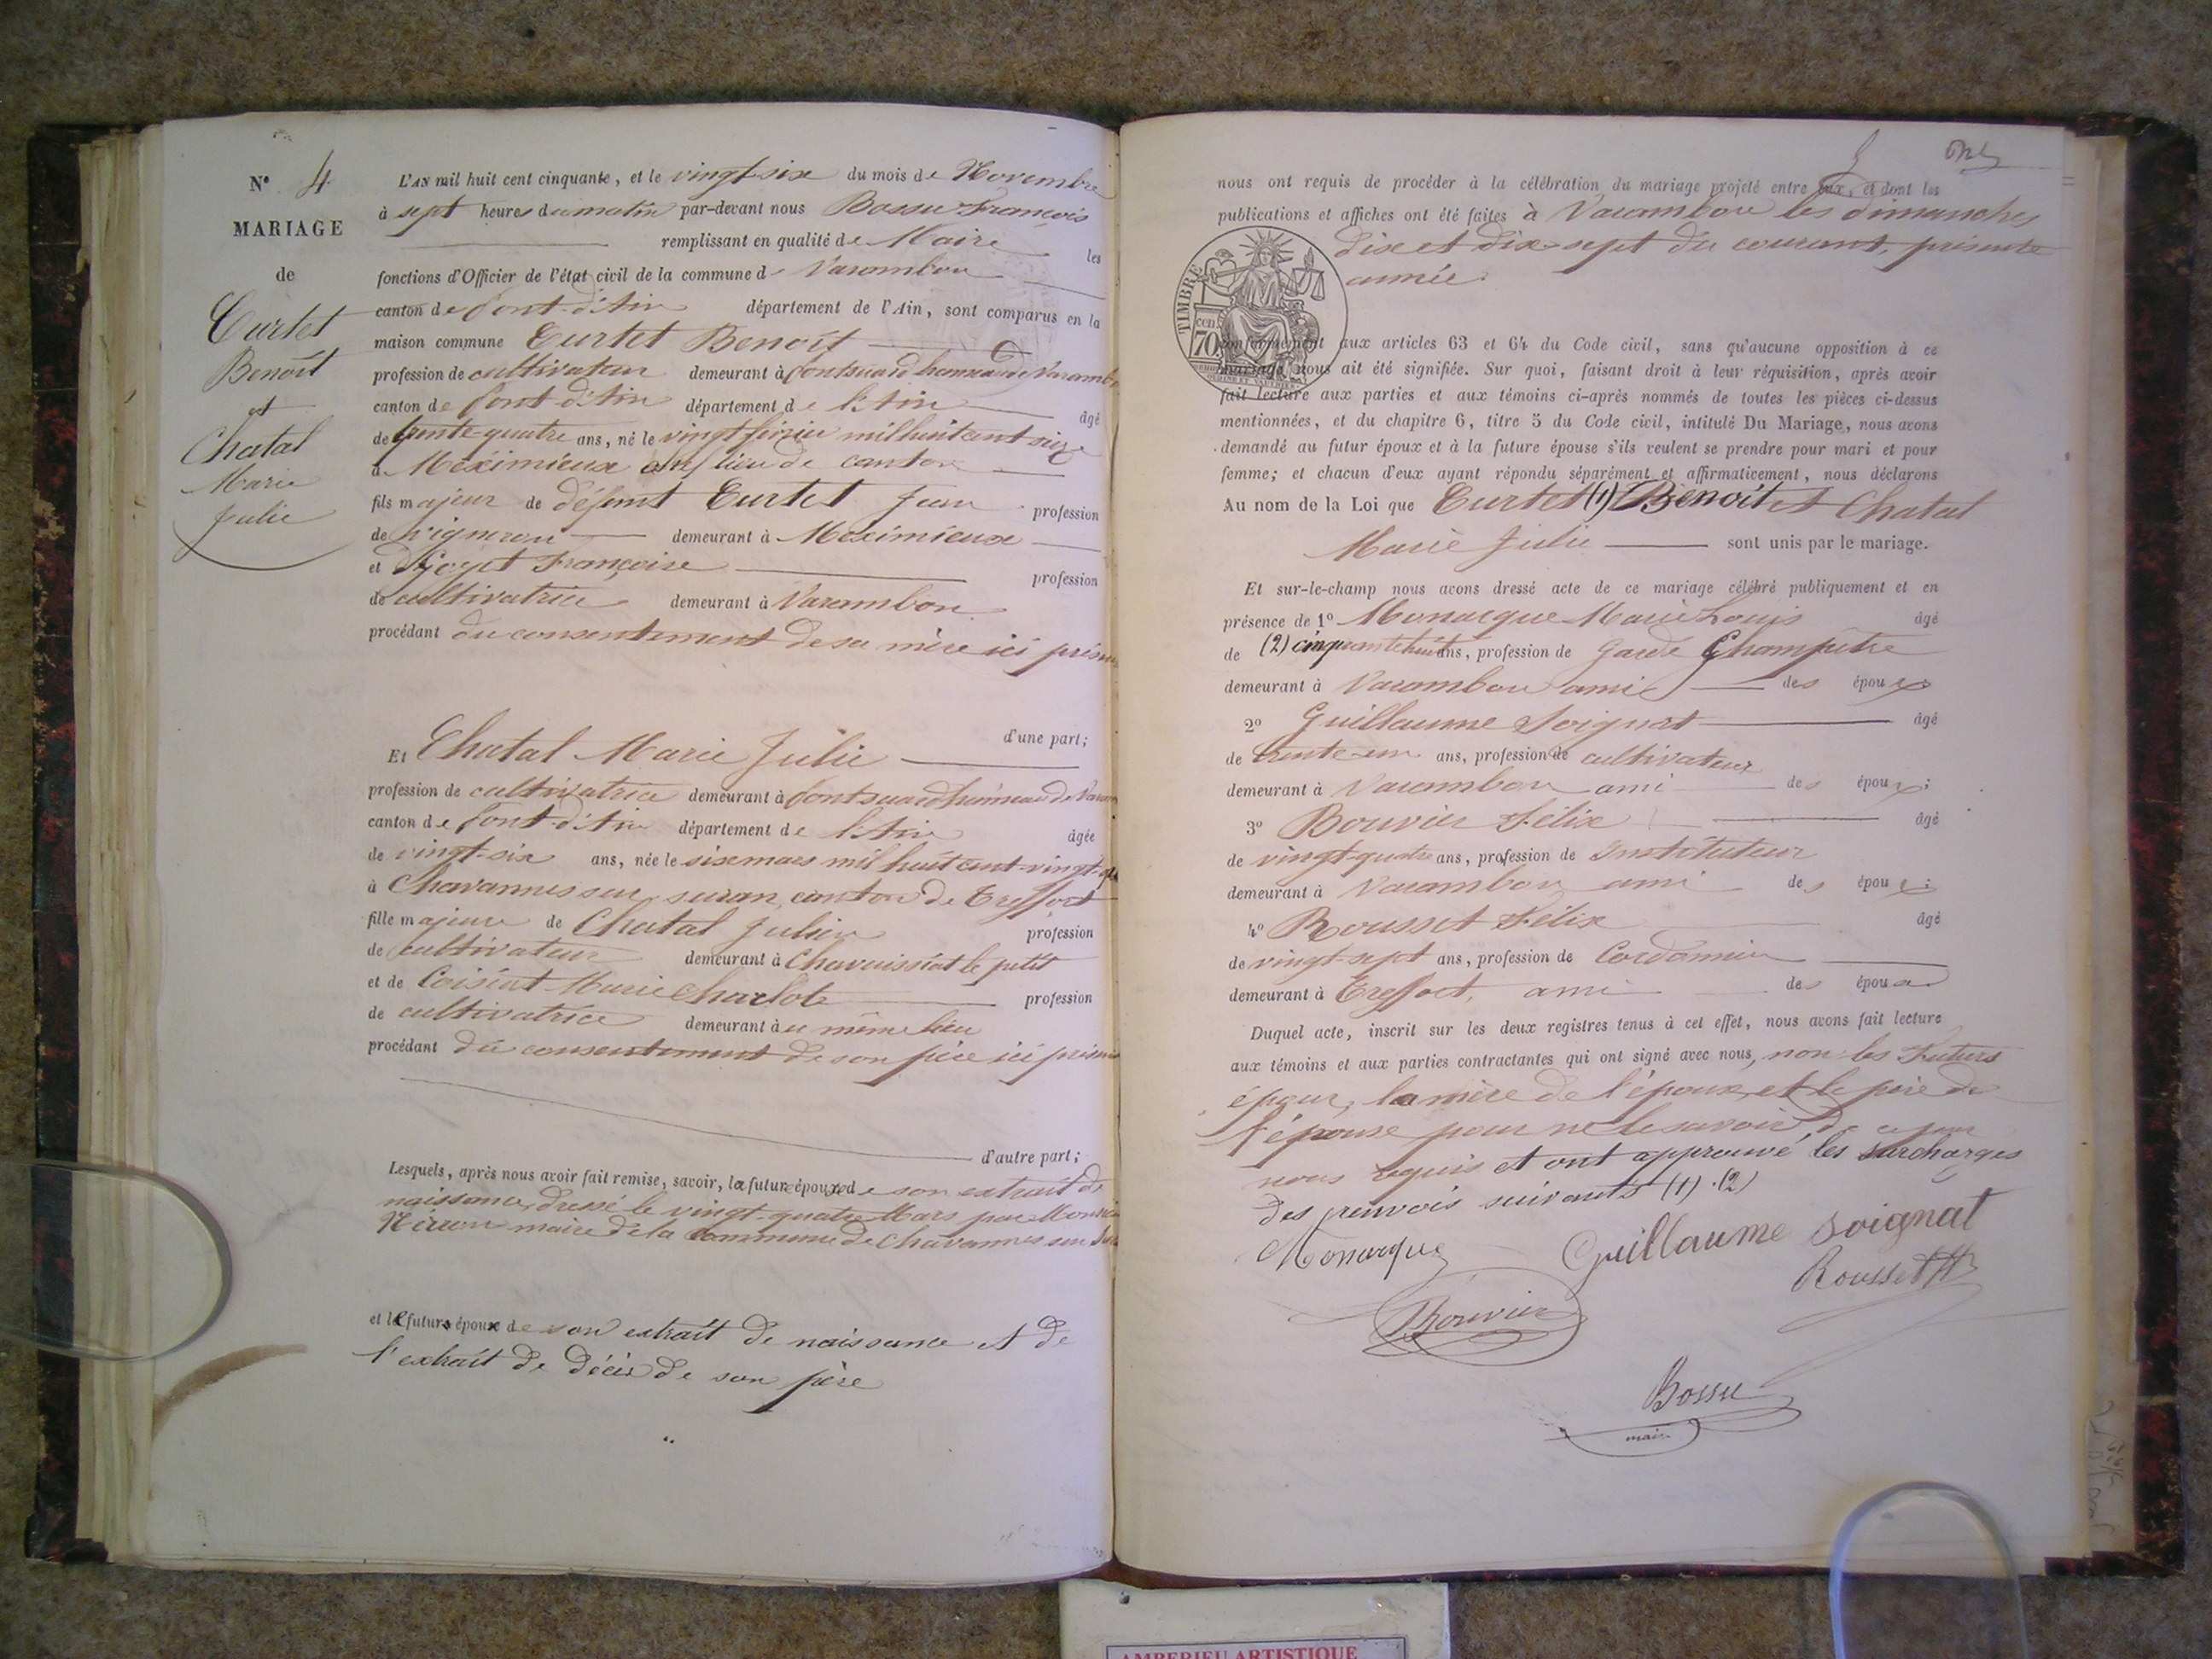 N° 4
MARIAGE
de
Curtet
Benoît
et
Chatal
Marie
Julie
L'AN mil huit cent cinquante, et le vingt-six du mois de Novembre
à sept heures du matin par-devant nous Bossu François
remplissant en qualité de Maire les
fonctions d'Officier de l'état civil de la commune d Varambon
canton de Pont-d'Ain département de l'Ain, sont comparus en la
maison commune Curtet Benoît
profession de cultivateur demeurant à hameau de Varambon
canton de Pont-d'Ain département de l'Ain âgé
de trente-quatre ans, né le vingt février mil huit cent seize
à Meximieux chef lieu de canton
fils majeur de défunt Curtet Jean profession
de vigneron demeurant à Meximieux
et de Goyet Françoise profession
de cultivatrice demeurant à Varambon
procédant du consentement de sa mère ici présente
d'une part;
Et Chatal Marie Julie
profession de cultivatrice demeurant à hameau de Varam
canton de Pont-d'Ain département de l'Ain âgée
de vingt-six ans, née le six mars mil huit cent-vingt-qu
à Chavannes sur suran, canton de Treffort
fille majeure de Chatal Julien profession
de cultivateur demeurant à Chavuissiat le petit
et de Coisiat Marie Charlote profession
de cultivatrice demeurant au même lieu
procédant du consentement de son père ici présent
d'autre part;
Lesquels, après nous avoir fait remise, savoir, la future épouse de son extrait de
naissance, dressé le vingt-quatre Mars par Monsieur
maire de la Commune de Chavannes sur Sur
et le futur époux de son extrait de naissance et de
l'extrait de décès de son père
nous ont requis de procéder à la célébration du mariage projeté entre eux, et dont les
publications et affiches ont été faites à Varambon les dimanches
dix et dix-sept du courant, présente
année
TIMBRE
cen
70
conformément aux articles 63 et 64 du Code civil, sans qu'aucune opposition à ce
mariage nous ait été signifiée. Sur quoi, faisant droit à leur réquisition, après avoir
fait lecture aux parties et aux témoins ci-après nommés de toutes les pièces ci-dessus
mentionnées, et du chapitre 6, titre 5 du Code civil, intitulé Du Mariage, nous avons
demandé au futur époux et à la future épouse s'ils veulent se prendre pour mari et pour
femme; et chacun d'eux ayant répondu séparément et affirmativement, nous déclarons
Au nom de la Loi que Curtet (1) Benoît et Chatal
Marie Julie sont unis par le mariage.
Et sur-le-champ nous avons dressé acte de ce mariage célébré publiquement et en
présence de 1° Monarque Marie Louis âgé
de (2) cinquante huit ans, profession de Garde Champêtre
demeurant à Varambon ami des époux
2° Guillaume Soignat âgé
de trente-un ans, profession de cultivateur
demeurant à Varambon ami des époux;
3° Bouvier Félix âgé
de vingt-quatre ans, profession de Instituteur
demeurant à Varambon ami des époux;
4° Rousset Félix âgé
de vingt-sept ans, profession de Cordonnier
demeurant à Treffort, ami des époux
Duquel acte, inscrit sur les deux registres tenus à cet effet, nous avons fait lecture
aux témoins et aux parties contractantes qui ont signé avec nous, non les Futurs
époux, la mère de l'époux, et le père de
l'épouse pour ne le savoir de ce par
nous requis et ont approuvé les surcharges
des renvois suivants (1) . (2)
Monarque
Guillaume Soignat
Rousset
Bouvier
Bossu
maire
AMBERIEU ARTISTIQUE